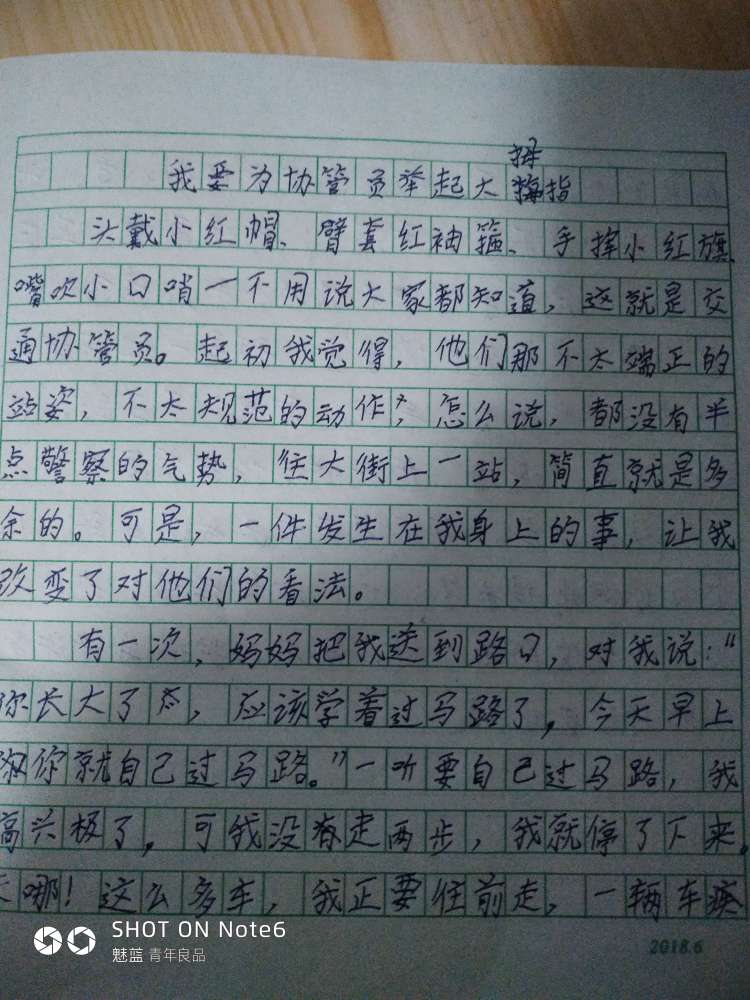 我要为协管员举起大拇指
头戴小红帽、臂套红袖箍、手挥小红旗、
嘴吹小口哨一不用说大家都知道，这就是交
通协管员。起初我觉得，他们那不太端正的
站姿，不太规范的动作，怎么说，都没有半
点警察的气势，往大街上一站，简直就是多
余的。可是，一件发生在我身上的事，让我
改变了对他们的看法。
有一次，妈妈把我送到路口，对我说：“
你长大了，应该学着过马路了，今天早上
你就自己过马路。”一听要自己过马路，我
高兴极了，可我没走两步，我就停了下来。
天哪！这么多车，我正要往前走，一辆车
SHOT ON Note6
魅蓝 青年良品
2018.6